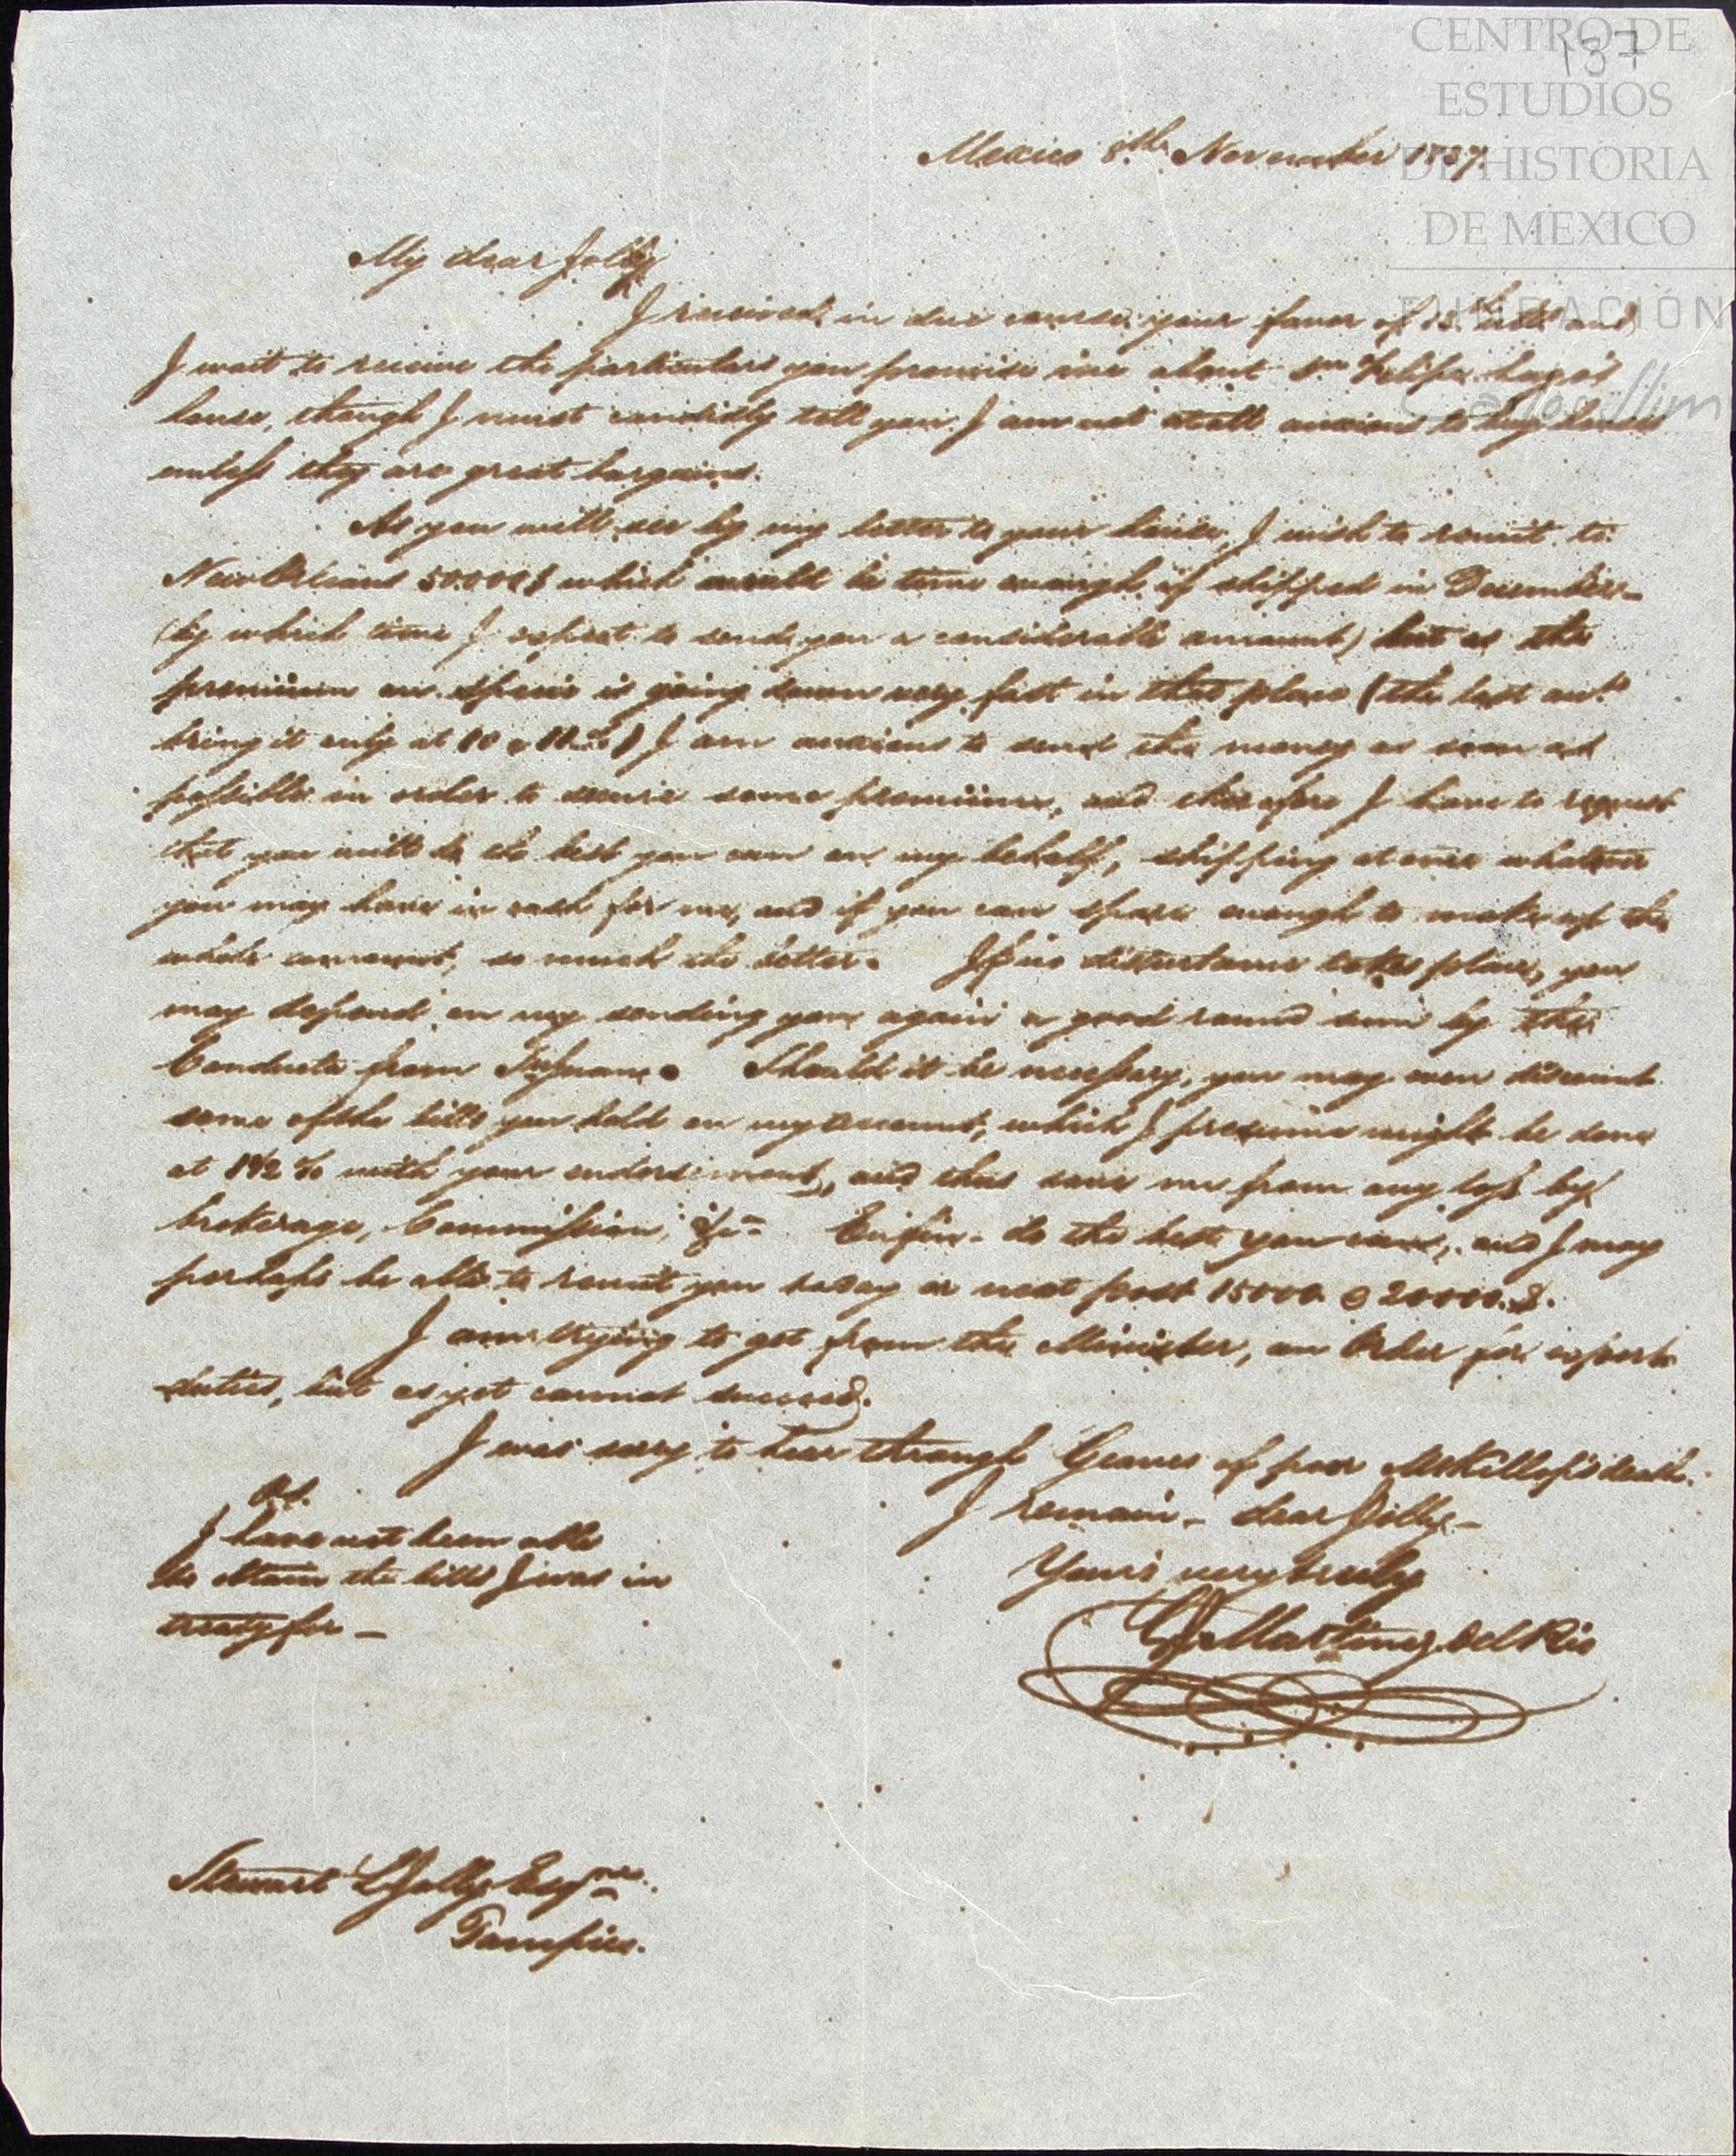 CENTRO DE
ESTUDIOS
DE HISTORIA
DE MEXICO
FUNDACIÓN
137
Mexico 8th November 1837.
My dear Jolly
I received in due course your favor of and
I wait to receive the particulars you promise me about Felipe Lagos
house, though I must candidly tell you I am not atall anxious to buy houses
unless they are great bargains.
As you will see by my letter to your house, I wish to remit to
New Orleans 50.000$ which would be time enough if shipped in December
(by which time I expect to send you a considerable amount) but as the
premium on specie is going down very fast in that place (the last
bring it only at 10 a 11 %) I am anxious to send the money as soon as
possible in order to secure some premium, and therefore I have to request
that you will do the best you can on my behalf, shipping at once whatever
you may have in cash for me, and if you can spare enough to make up the
whole amount, so much the better. If no disturbance takes place, you
may depend on my sending you again a good round sum by the
Conducta from Sn Juan. Should it be necessary, you may even discount
some of the bills you hold on my account, which I presume might be done
at 1 1/2 % with your endorsement, and thus save me from any loss by
brokerage, Commission, &c. Enfin do the best you can, and I may
perhaps be able to remit you today or next post 15000 @ 20000.$.
I am trying to get from the Minister, an Order for export
duties, but as yet cannot succeed.
I was sorry to hear through Graves of poor McKillop's death.
I remain - dear Jolly -
Yours very truly
Martinez del Rio
P.S.
I have not been able
to obtain the bills I was in
treaty for -
Stewart L Jolly Esqre.
Tampico.